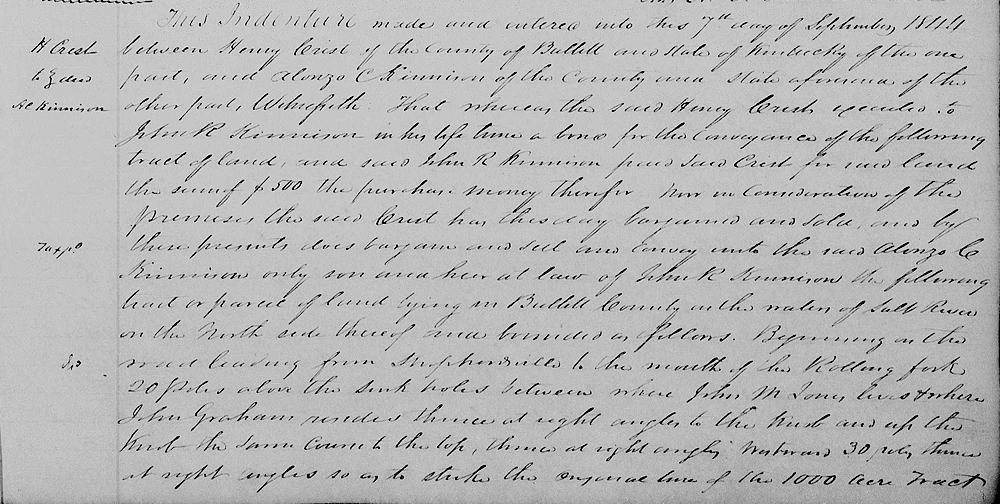 This Indenture made and entered into this 7th day of September 1844
H Crist
between Henry Crist of the County of Bullitt and state of Kentucky of the one
to } deed
part, and Alonzo C Kinnison of the County and state aforesaid of the
A C Kinnison
other part, Witnesseth. That whereas the said Henry Crist executed to
John R Kinnison in his life time a bond for the Conveyance of the following
tract of land, and said John R Kinnison paid said Crist for said land
the sum of $500 the purchase money therefor Now in Consideration of the
premises the said Crist has this day bargained and sold, and by
Tax pd
these presents does bargain and sell and convey unto the said Alonzo C
Kinnison only son and heir at law of John R Kinnison the following
tract or parcel of land lying in Bullitt County on the waters of Salt River
on the North side thereof and bounded as follows. Beginning on the
road leading from Shepherdsville to the mouth of the Rolling fork
20 poles above the sink holes between where John M Jones lives & where
John Graham resides thence at right angles to the Knob and up the
Knob the same course to the top, thence at right angles Westward 30 poles thence
at right angles so as to strike the original line of the 1000 acre Tract